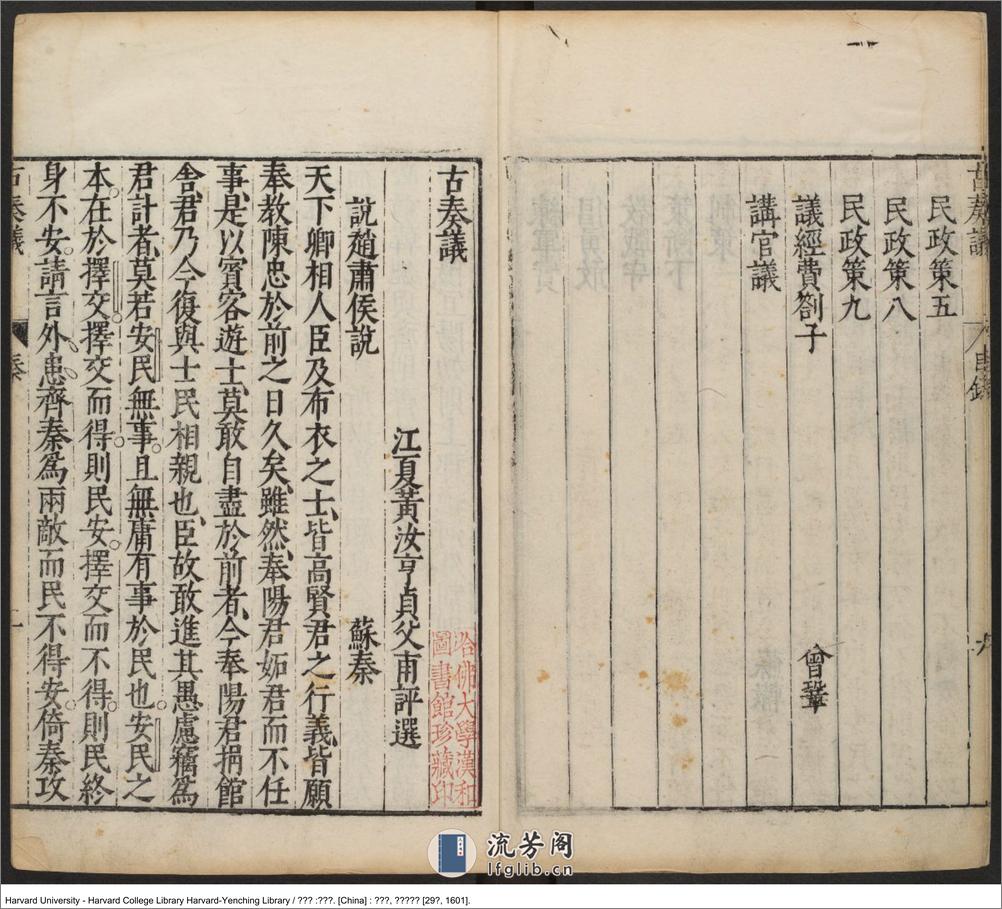 古奏議
目錄
九
民政策五
民政策八
民政策九
議經費劄子
曾鞏
講官議
古奏議
江夏黃汝亨貞父甫評選
說趙肅侯說
蘇秦
天下卿相人臣及布衣之士皆高賢君之行義皆願
奉教陳忠於前之日久矣雖然奉陽君妬君而不任
事是以賓客遊士莫敢自盡於前者今奉陽君捐館
舍君乃今復與士民相親也臣故敢進其愚慮竊爲
君計者莫若安民無事且無庸有事於民也安民之
本在於擇交擇交而得則民安擇交而不得則民終
身不安請言外患齊秦爲兩敵而民不得安倚秦攻
古奏議
秦
一
哈佛大學漢和
圖書館珍藏印
流芳阁
lfglib.cn
Harvard University - Harvard College Library Harvard-Yenching Library / ??? :???. [China] : ???, ????? [29?, 1601].